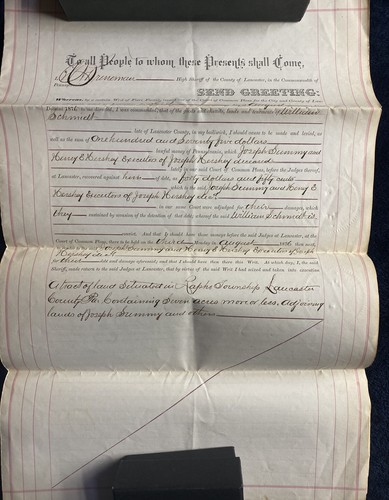 To all People to whom these Presents shall Come,
High Sheriff of the County of Lancaster, in the Commonwealth of
SEND GREETING:
Whereas,
William
Schmidt
late of Lancaster County, in my bailiwick, I should cause to be made and levied, as
well as the sum of One hundred and Seventy five dollars
lawful money of Pennsylvania, which Joseph Summy and
Henry E Hershey Executors of Joseph Hershey deceased
lately in our said Court of Common Pleas, before the Judges thereof,
at Lancaster, recovered against him of debt, as forty dollars and fifty cents
which to the said Joseph Summy and Henry E
Hershey Executors of Joseph Hershey dec'd
in our same Court were adjudged for their damages, which
they sustained by occasion of the detention of that debt, whereof the said William Schmidt is
convict. And that I should have those moneys before the said Judges at Lancaster, at the
Court of Common Pleas, there to be held on the third Monday in August 1876
Joseph Summy and Henry E Hershey Executors of Joseph
Hershey dec'd
for their debt and damages aforesaid; and that I should have then there this Writ. At which day, I, the said
Sheriff, made return to the said Judges at Lancaster, that by virtue of the said Writ I had seized and taken into execution
A tract of land Situated in Rapho Township Lancaster
County Pa. Containing Seven acres more or less, Adjoining
lands of Joseph Summy and others